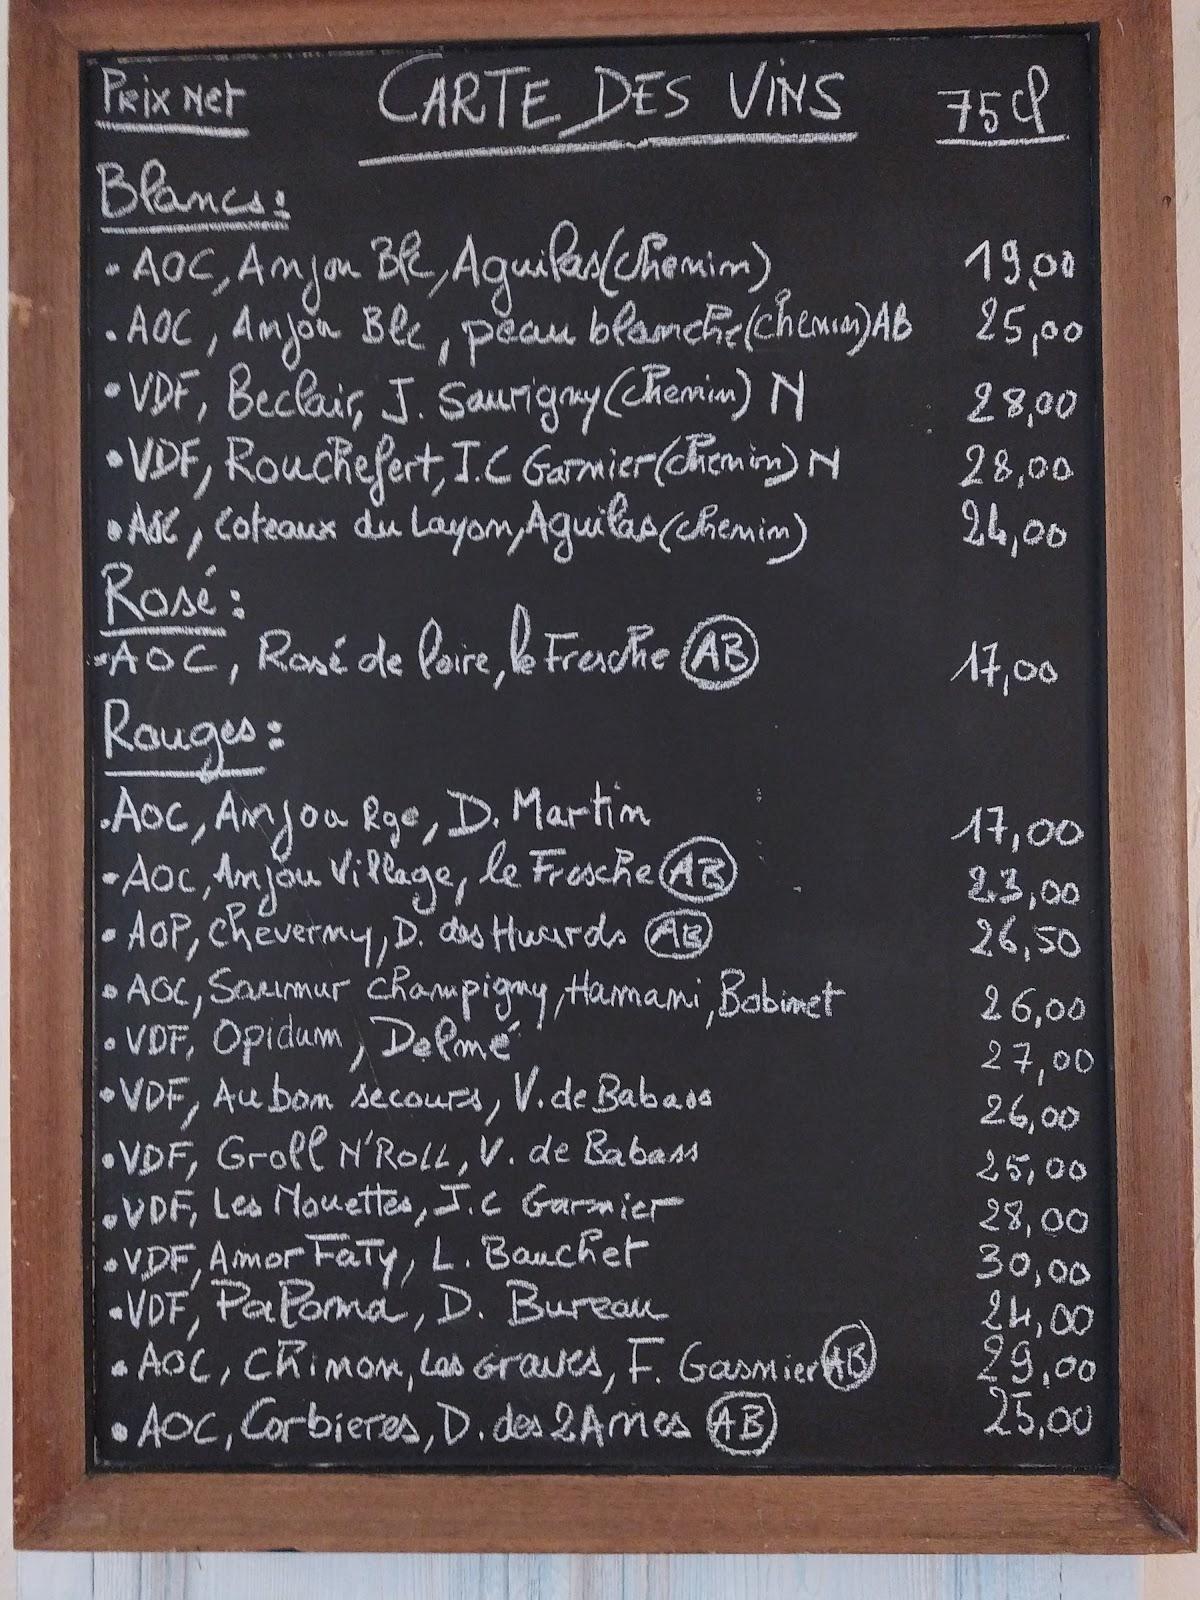 Prix net CARTE DES VINS 75cl
Blancs:
• AOC, Anjou Blc, Aguilas (chenin) 19,00
• AOC, Anjou Blc, peau blanche (chenin) AB 25,00
• VDF, Beclair, J. Sauvigny (chenin) N 28,00
• VDF, Rouchefert, J.C Garnier (chenin) N 28,00
• AOC, Coteaux du Layon, Aguilas (chenin) 24,00
Rosé:
• AOC, Rosé de loire, le Fresche AB 17,00
Rouges:
• AOC, Anjou Rge, D. Martin 17,00
• AOC, Anjou Village, le Fresche AB 23,00
• AOP, Cheverny, D. des Huards AB 26,50
• AOC, Saumur Champigny, Hanami, Bobinet 26,00
• VDF, Opidum, Delmé 27,00
• VDF, Au bon secours, V. de Babass 26,00
• VDF, Groll N'Roll, V. de Babass 25,00
• VDF, Les Nouettes, J.C Garnier 28,00
• VDF, Amor Faty, L. Bauchet 30,00
• VDF, D. Bureau 24,00
• AOC, Chinon, Les Graves, F. Gasnier AB 29,00
• AOC, Corbieres, D. des 2 Anes AB 25,00